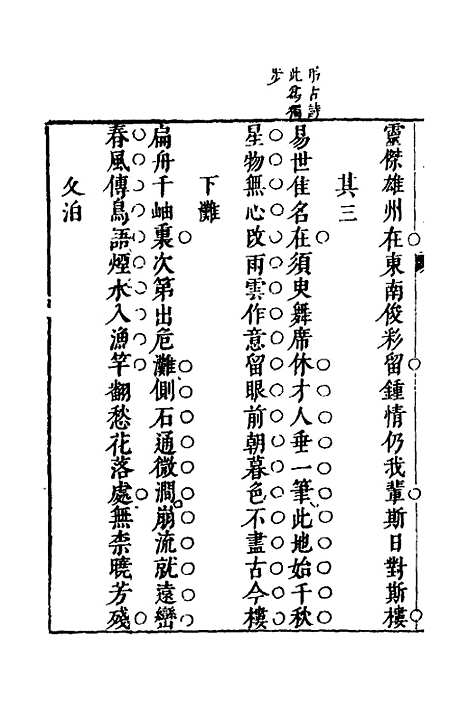 靈傑雄州在東南俊彩留鍾情仍我輩斯日對斯樓
其三
易世佳名在須臾舞席休才人垂一筆此地始千秋
星物無心改雨雲作意留眼前朝暮色不盡古今樓
下灘
扁舟千岫裏次第出危灘側石通微澗崩流就遠巒
春風傳鳥語煙水入漁竿翻愁花落處無柰曉芳殘
夂泊
古詩
此為獨